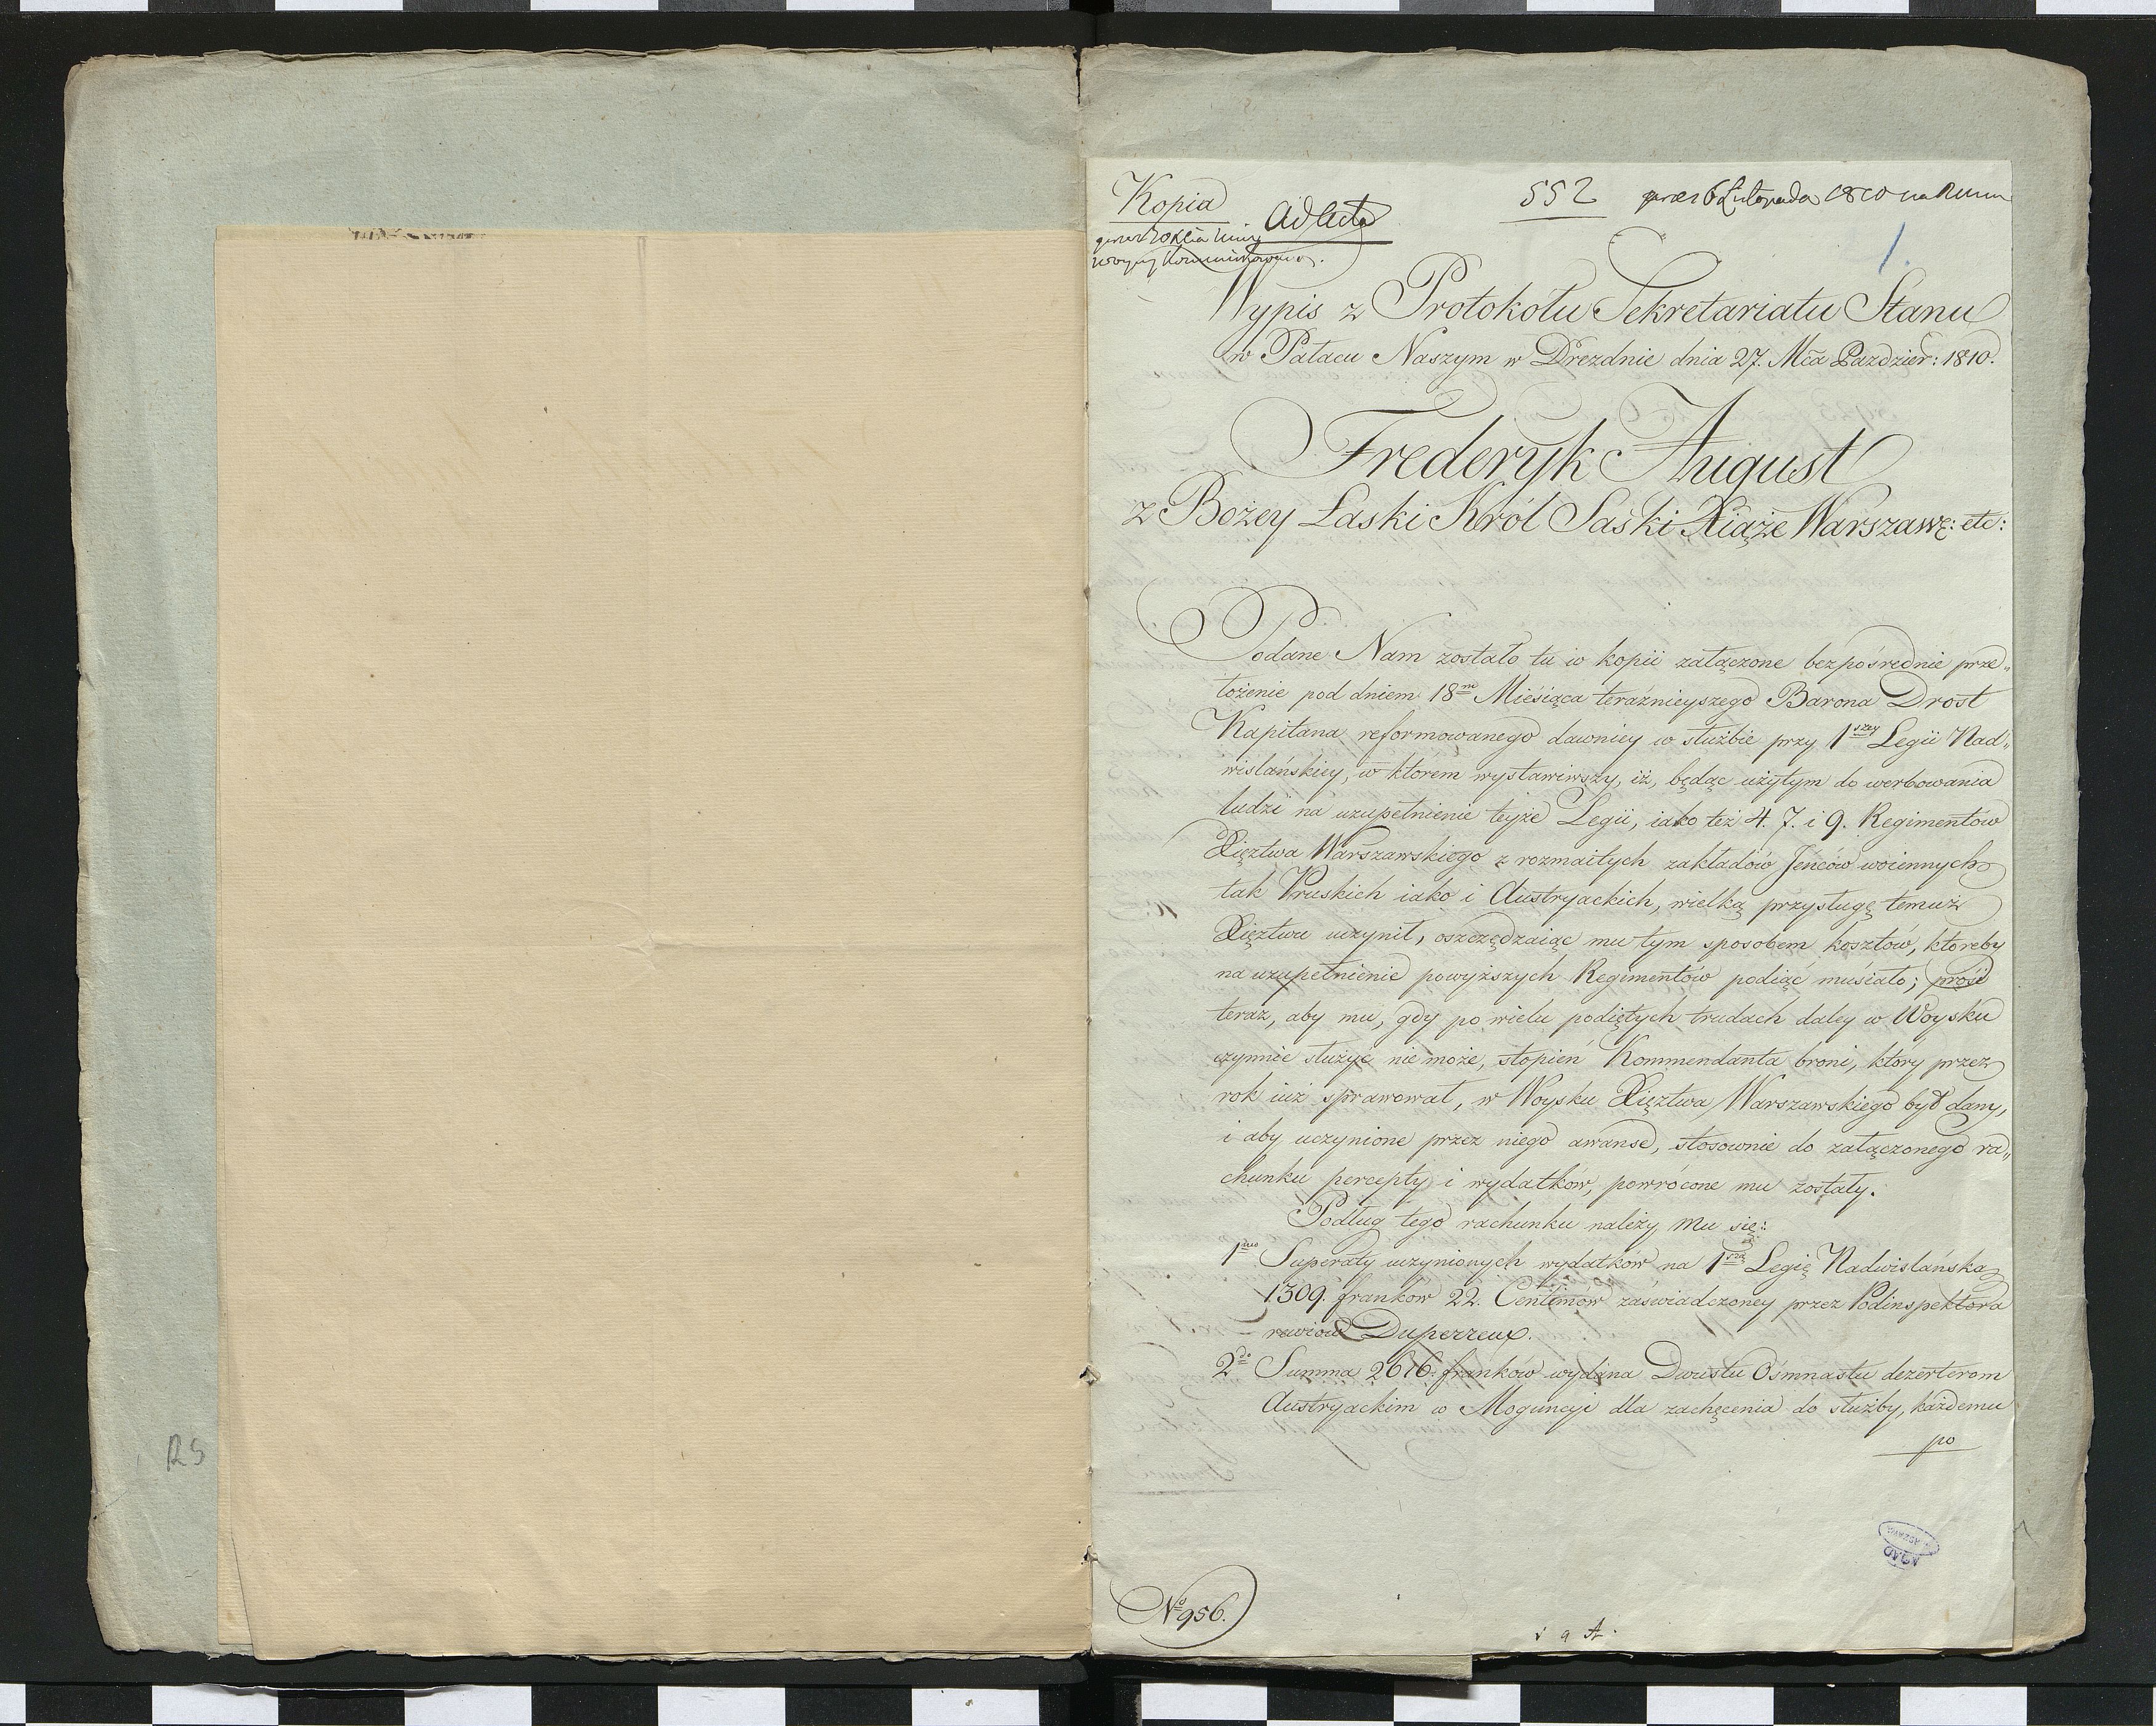 Kopia
ad acta
552 praes 6 Listopada 1810 na Rum
1.
Wypis z Protokołu Sekretariatu Stanu
w Pałacu Naszym w Dreznie dnia 27. Mca Pazdzier: 1810.
Frederyk August
z Bożey Łaski Król Saski Xiąże Warszaws: etc:
Podane Nam zostało tu w kopii załączone bezpośrednie prze„
łożenie pod dniem 18m Miesiąca teraźnieyszego Barona Drost
Kapitana reformowanego dawniey w służbie przy 1szey Legii Nad„
wislańskiey, w ktorem wystawiwszy, iż, będąc użytym do werbowania
ludzi na uzupełnienie teyże Legii, iako też 4. 7. i 9. Regimentow
Xięztwa Warszawskiego z rozmaitych zakładów Jeńców woiennych
tak Pruskich iako i Austryackich, wielką przysługę temuż
Xięztwu uczynił, oszczędzaiąc mu tym sposobem kosztów, ktoreby
na uzupełnienie powyższych Regimentów podiąć musiało; prosi
teraz, aby mu, gdy po wielu podiętych trudach daley w Woysku
czynnie służyć nie może, stopień Kommendanta broni, który przez
rok iuż sprawował, w Woysku Xięztwa Warszawskiego był dany,
i aby uczynione przez niego awanse, stosownie do załączonego ra„
chunku percepty i wydatków, powrócone mu zostały.
Podług tego rachunku należy mu się:
1mo Superaty uczynionych wydatków na 1szą Legię Nadwislańską
1309. franków 22. Centimów zaświadczoney przez Podinspektora
rewiow Duperreux.
2do Summa 2616. franków wydana Dwustu Ośmnastu dezerterom
Austryackim w Moguncyi dla zachęcenia do służby, każdemu
po
AGAD
No 956.
RS